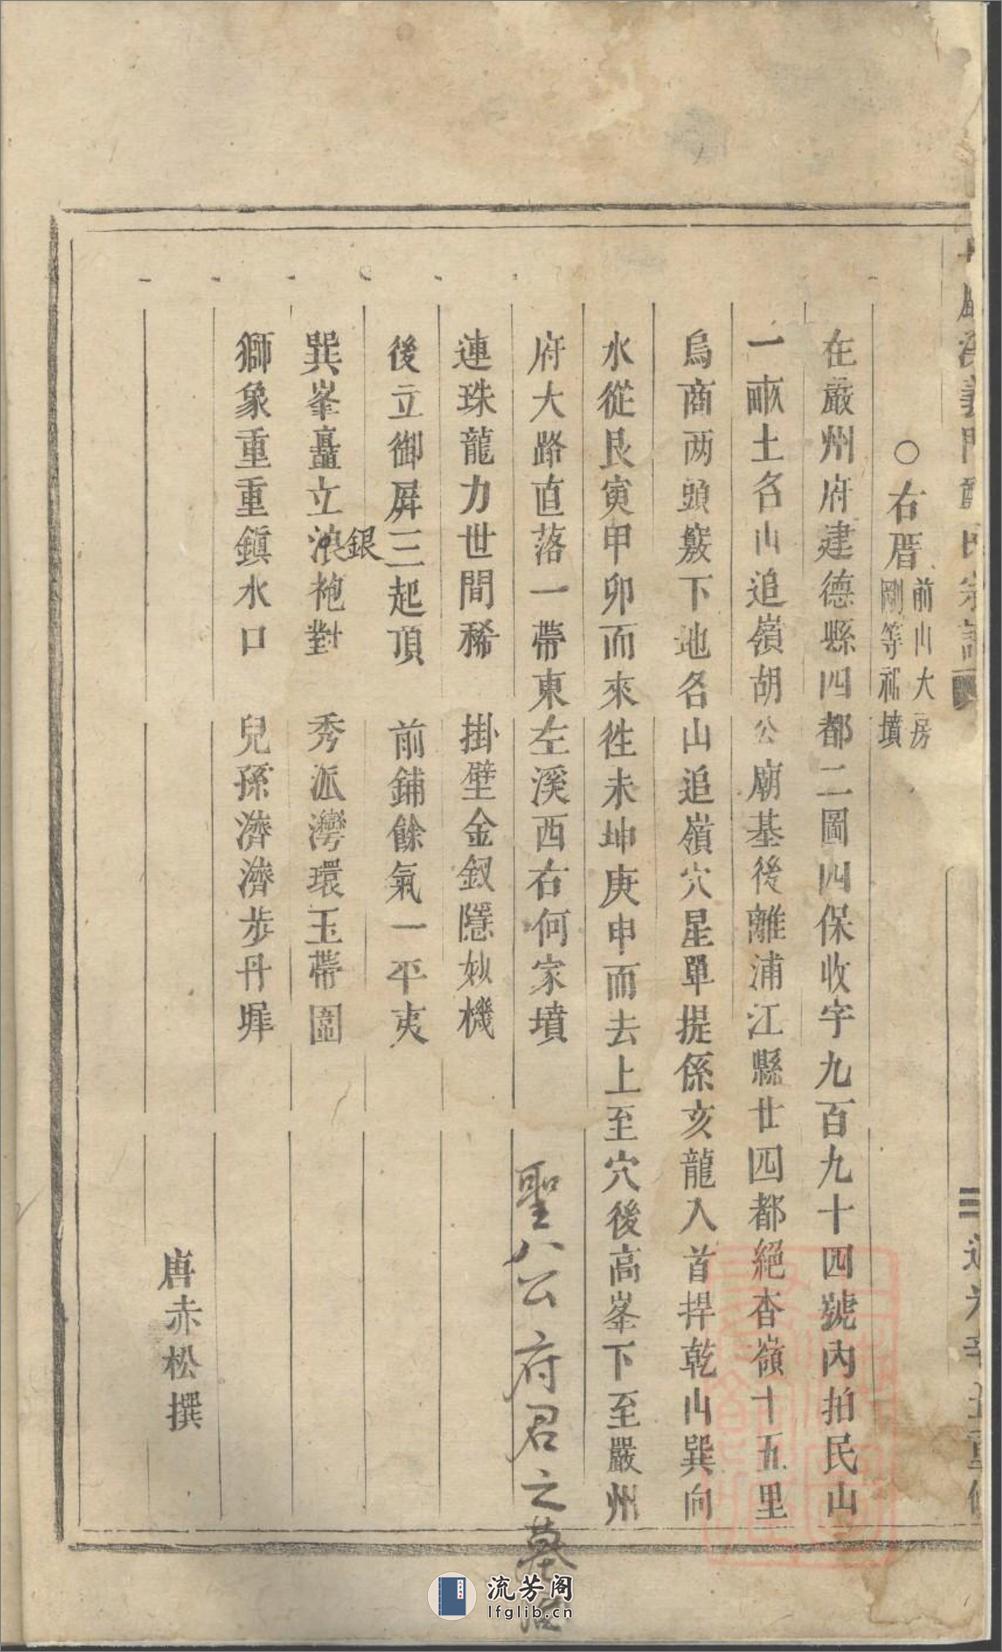 義門
宗譜
道光辛丑重修
○右厝
前山大房
剛等祀墳
在嚴州府建德縣四都二圖四保收字九百九十四號內拍民山
一畝土名山追嶺胡公廟基後離浦江縣廿四都絕杳嶺十五里
烏商两頭嶷下地名山追嶺穴星單提係亥龍入首捍乾山巽向
水從艮寅甲卯而來徃未坤庚申而去上至穴後高峯下至嚴州
府大路直落一帶東左溪西右何家墳
聖八公府君之墓
連珠龍力世間稀 掛壁金釵隱妙機
後立御屏三起頂 前鋪餘氣一平夷
銀
巽峯矗立浪袍對 秀派灣環玉帶圍
獅象重重鎮水口 兒孫濟濟步丹墀
唐赤松撰
流芳阁
lfglib.cn